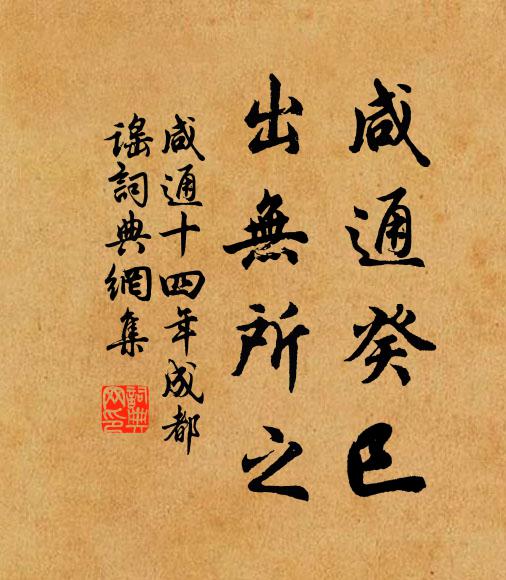 咸通癸巳
出無所之
咸通十四年成都
謠詞典網集
詞典
网印